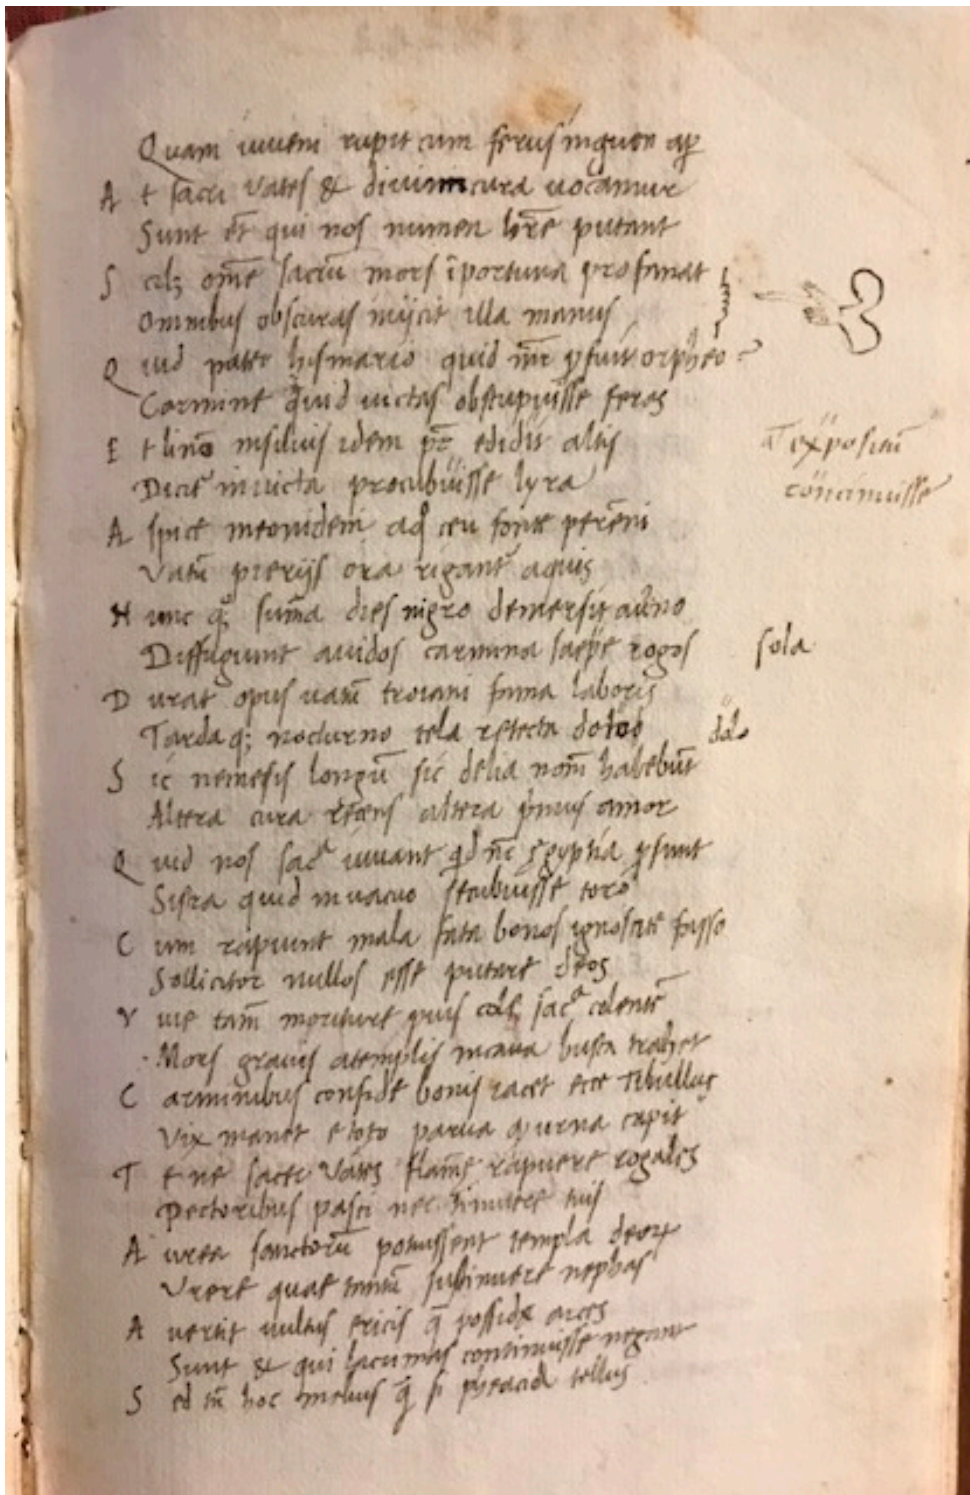 Quam iuveni rupit cum ferus inguen ap̄
A t sacri vates & divum cura uocamur
Sunt et̄ qui nos numen hr̄e putant
S cilꝫ om̄e sacrū mors īportuna profanat
Omnibus obscuras inijcit illa manus
Q uid pater hismario quid mr̄ ꝓfuit orpheo
Carmine quid victas obstupuisse feras
E t linō insiluis idem pr̄ edidit altis
exposituī
Dicit̄ invicta procubuisse lyra
concinuisse
A spice meonidem a quo ceu fonte perēni
Vatū pierijs ora rigant̄ aquis
H unc qꝫ sum̄a dies nigro demersit aūno
Diffugiunt avidos carmina saepe rogos sola
D urat opus vatū troiani fama laboris
Tarda qꝫ nocturno tela retecta dolo dolo
S ic nemesis longū sic delia nom̄ habebūt
Altera cura recens altera primus amor
Q uid nos sacᵃ iuvant qd nc̄ ęgyptia ꝓsunt
Sistra quid in vacuo secubuisse toro
C um rapiunt mala fata bonos ignoscite fasso
Sollicitor nullos esse putare deos
V ive tam̄ moriere pius cole sacᵃ colentē
Mors gravis atemplis incava busta trahet
C arminibus confide bonis iacet ecce Tibullus
Vix manet e toto parva qd urna capit
T e ne sacer vates flam̄e rapuere rogales
Pectoribus pasci nec timuere tuis
A urea sanctorū potuissent templa deoꝝ
Urere quae tantū sustinuere nephas
A vertit vultus ericis q̄ possidet arces
Sunt & qui lacrimas continuisse negant
S ed tn̄ hoc melius q̄ si pheacia tellus